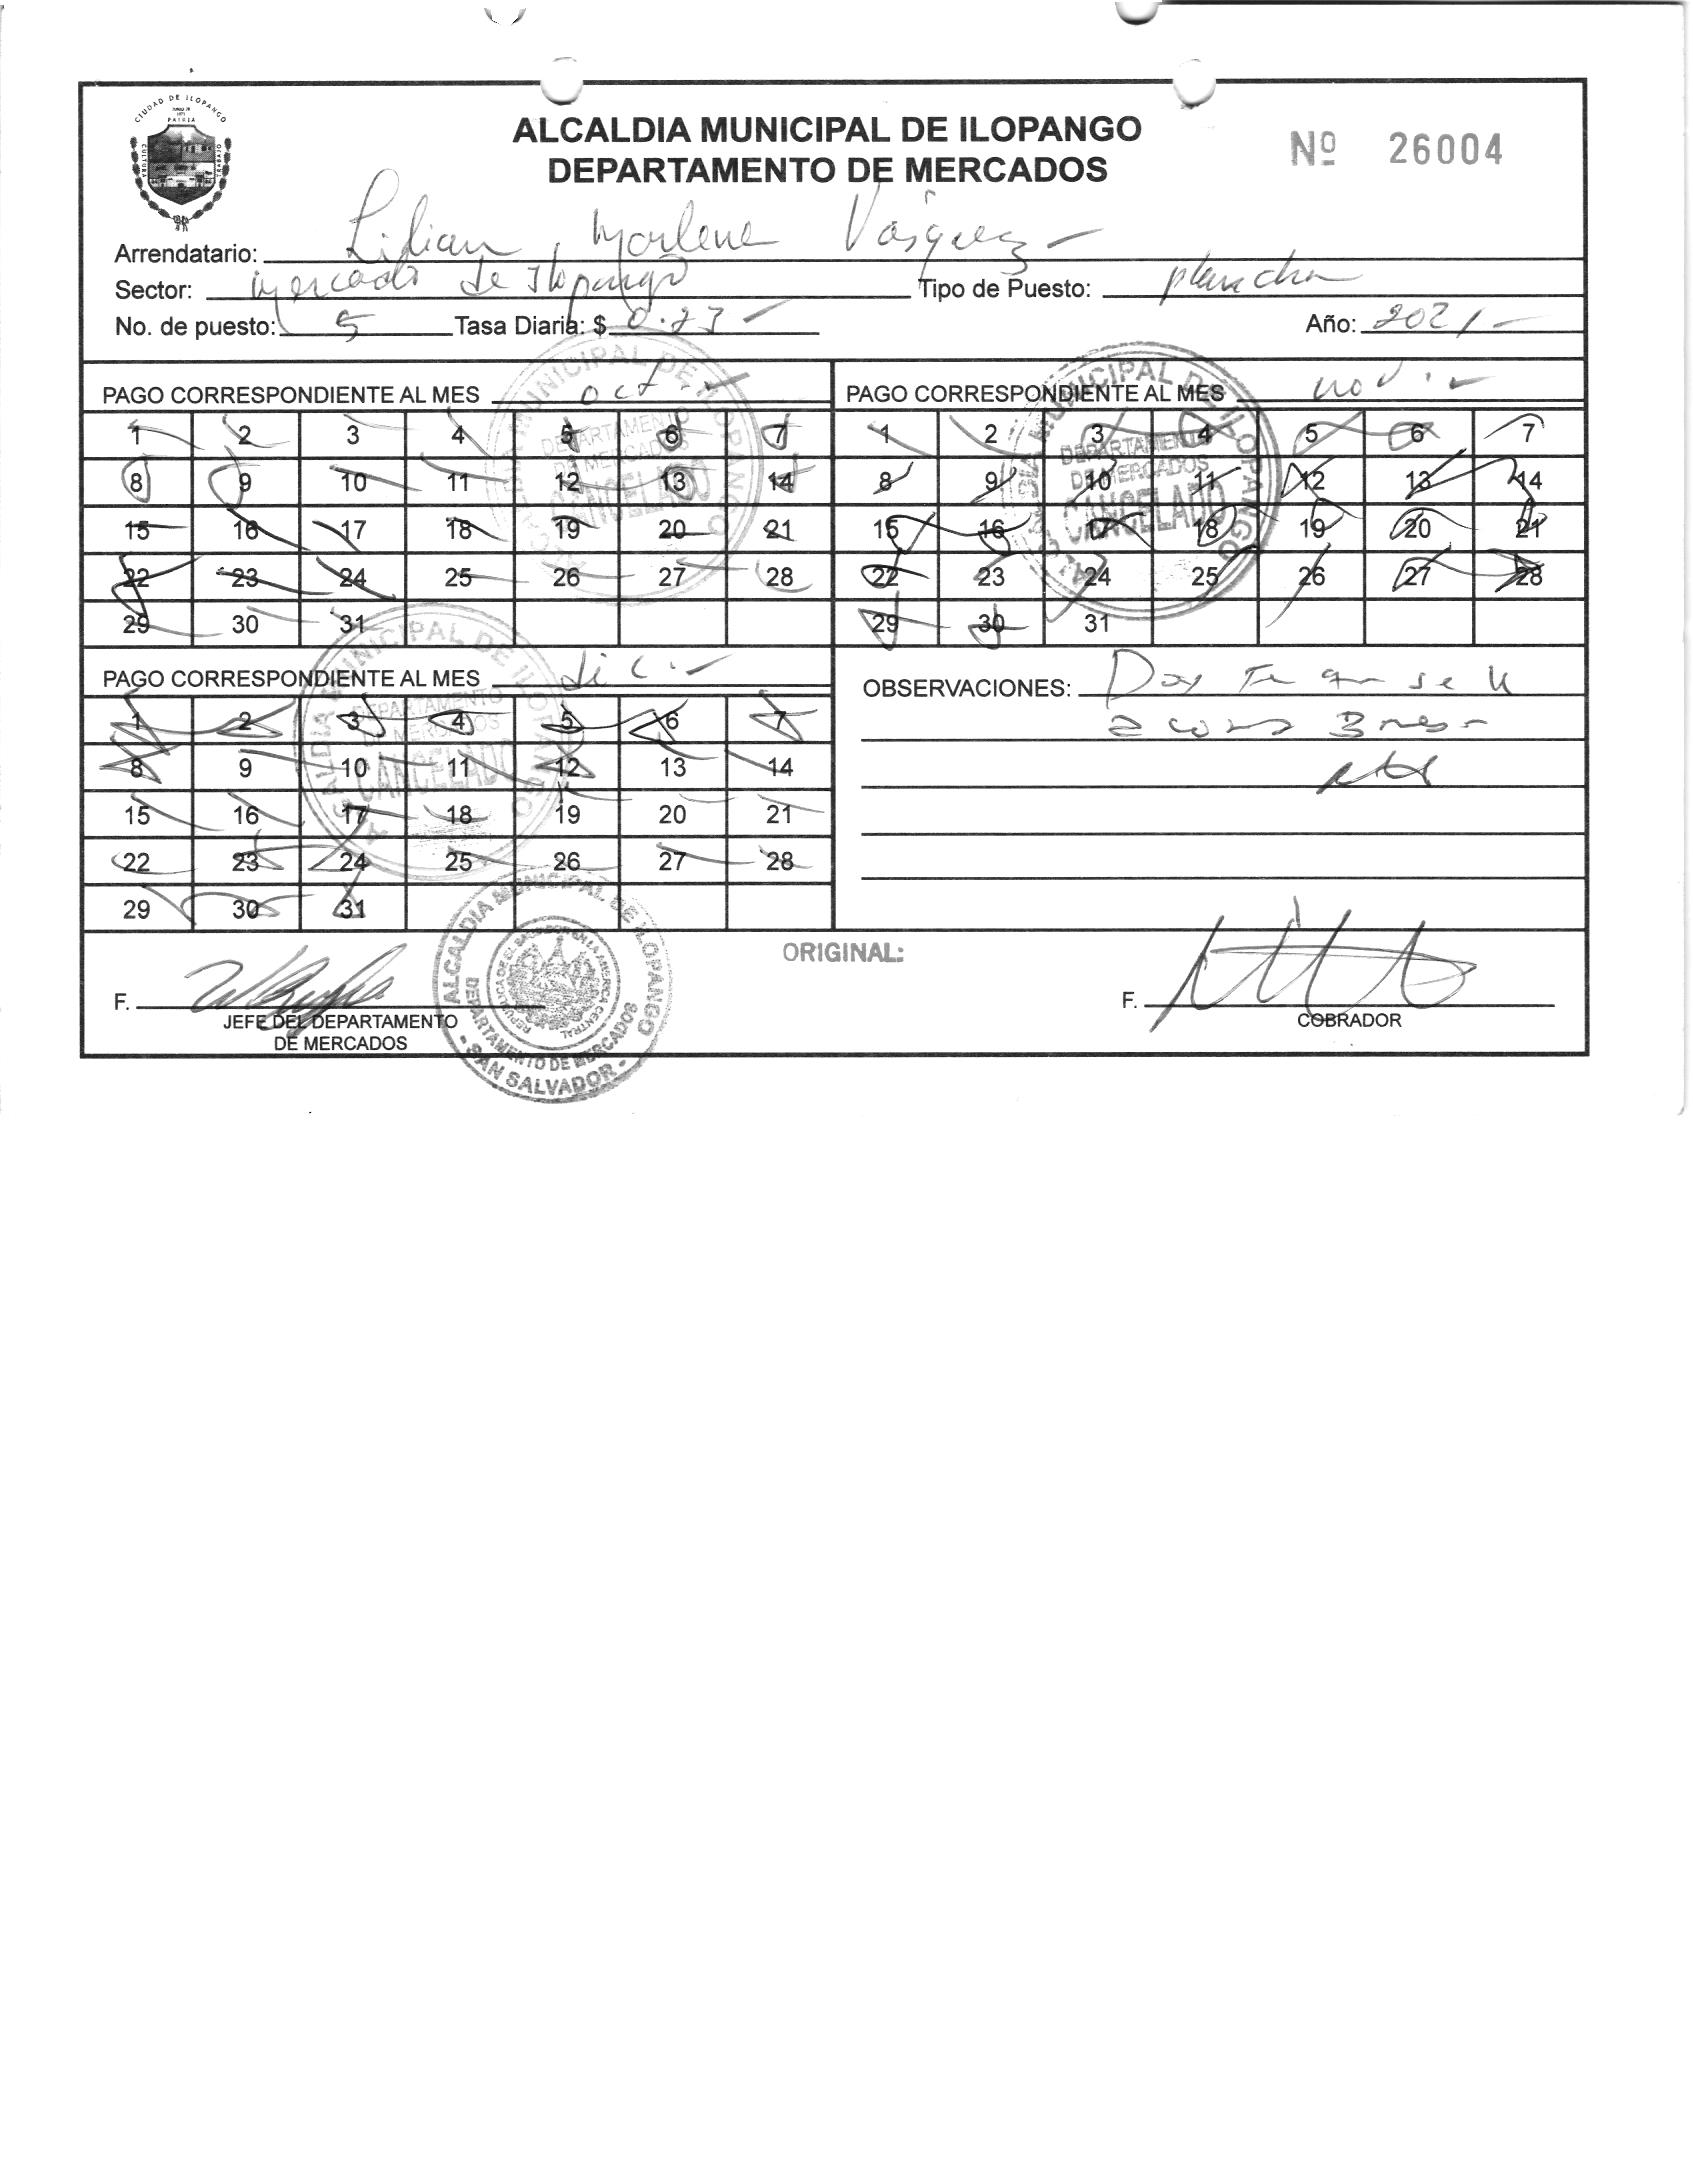 CIUDAD DE ILOPANGO
PATRIA
CULTURA
TRABAJO
ALCALDIA MUNICIPAL DE ILOPANGO
DEPARTAMENTO DE MERCADOS
Nº 26004
Arrendatario: Lilian Marlene Vásquez
Sector: Mercado de Ilopango Tipo de Puesto: plancha
No. de puesto: 5 Tasa Diaria: $ 0.23 Año: 2021
PAGO CORRESPONDIENTE AL MES oct.
1 2 3 4 5 6 7
8 9 10 11 12 13 14
15 16 17 18 19 20 21
22 23 24 25 26 27 28
29 30 31
ALCALDIA MUNICIPAL DE ILOPANGO
DEPARTAMENTO
DE MERCADOS
CANCELADO
PAGO CORRESPONDIENTE AL MES nov.
1 2 3 4 5 6 7
8 9 10 11 12 13 14
15 16 17 18 19 20 21
22 23 24 25 26 27 28
29 30 31
ALCALDIA MUNICIPAL DE ILOPANGO
DEPARTAMENTO
DE MERCADOS
CANCELADO
PAGO CORRESPONDIENTE AL MES dic.
1 2 3 4 5 6 7
8 9 10 11 12 13 14
15 16 17 18 19 20 21
22 23 24 25 26 27 28
29 30 31
ALCALDIA MUNICIPAL DE ILOPANGO
DEPARTAMENTO
DE MERCADOS
CANCELADO
OBSERVACIONES: Doy Fe que se le
ORIGINAL:
F.
JEFE DEL DEPARTAMENTO
DE MERCADOS
ALCALDIA MUNICIPAL DE ILOPANGO
REPUBLICA DE EL SALVADOR EN LA AMERICA CENTRAL
DEPARTAMENTO DE MERCADOS
- SAN SALVADOR -
F.
COBRADOR